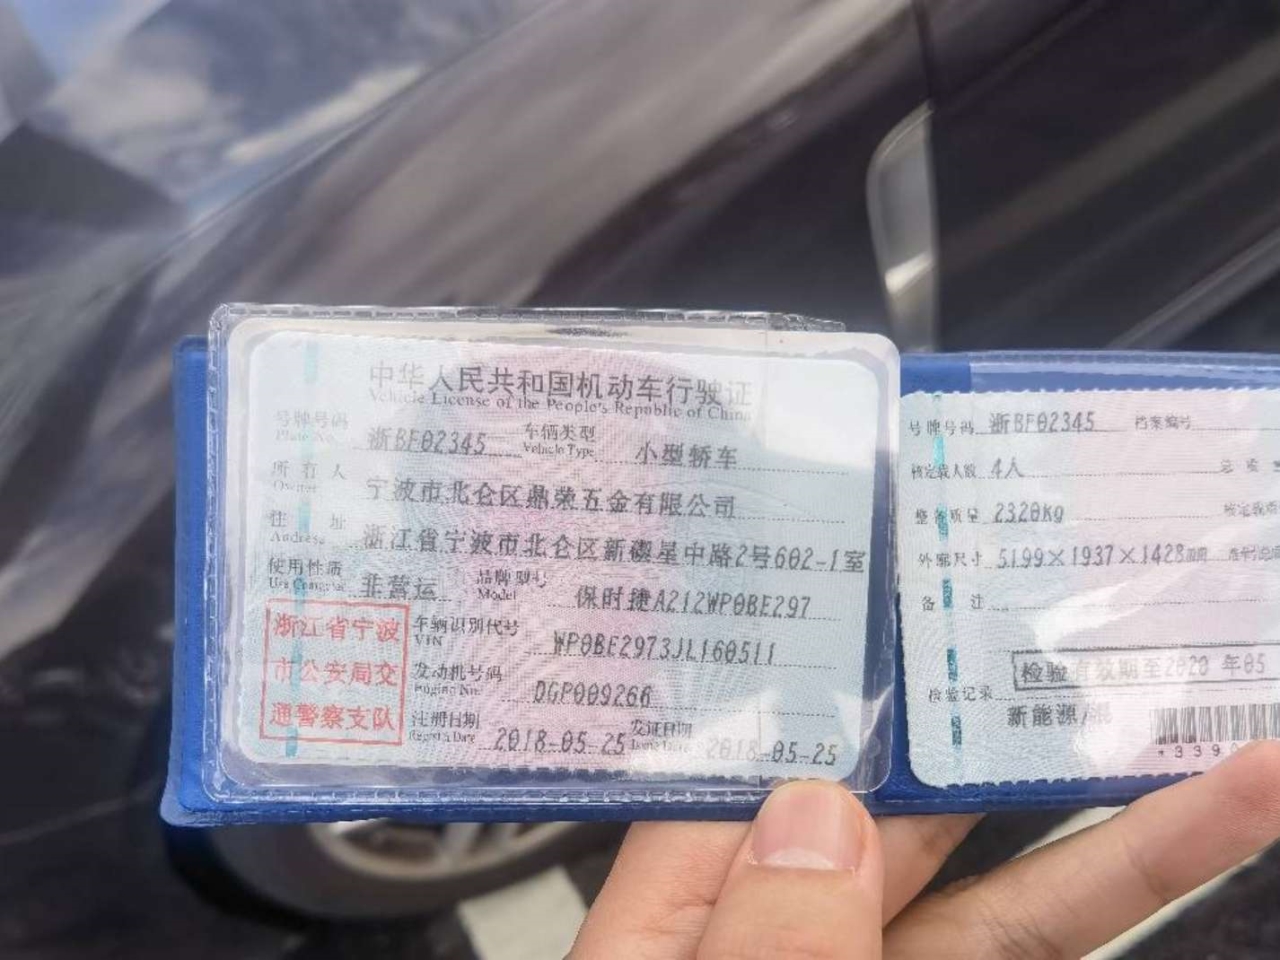 中华人民共和国机动车行驶证
Vehicle License of the People's Republic of China
号牌号码 浙BF02345 车辆类型 小型轿车
Plate No. Vehicle Type
所有人 宁波市北仑区鼎荣五金有限公司
Owner
住址 浙江省宁波市北仑区新碶星中路2号602-1室
Address
使用性质 非营运 品牌型号 保时捷A212WP0BE297
Use Character Model
浙江省宁波
市公安局交
通警察支队
车辆识别代号 WP0BE2973JL160511
VIN
发动机号码 DGP009266
Engine No.
注册日期 2018-05-25 发证日期 2018-05-25
Register Date Issue Date
号牌号码 浙BF02345 档案编号
核定载人数 4人 总质
整备质量 2320Kg 核定载
外廓尺寸 5199×1937×1428mm
备注
检验有效期至2020年05
检验记录
新能源/混
*339